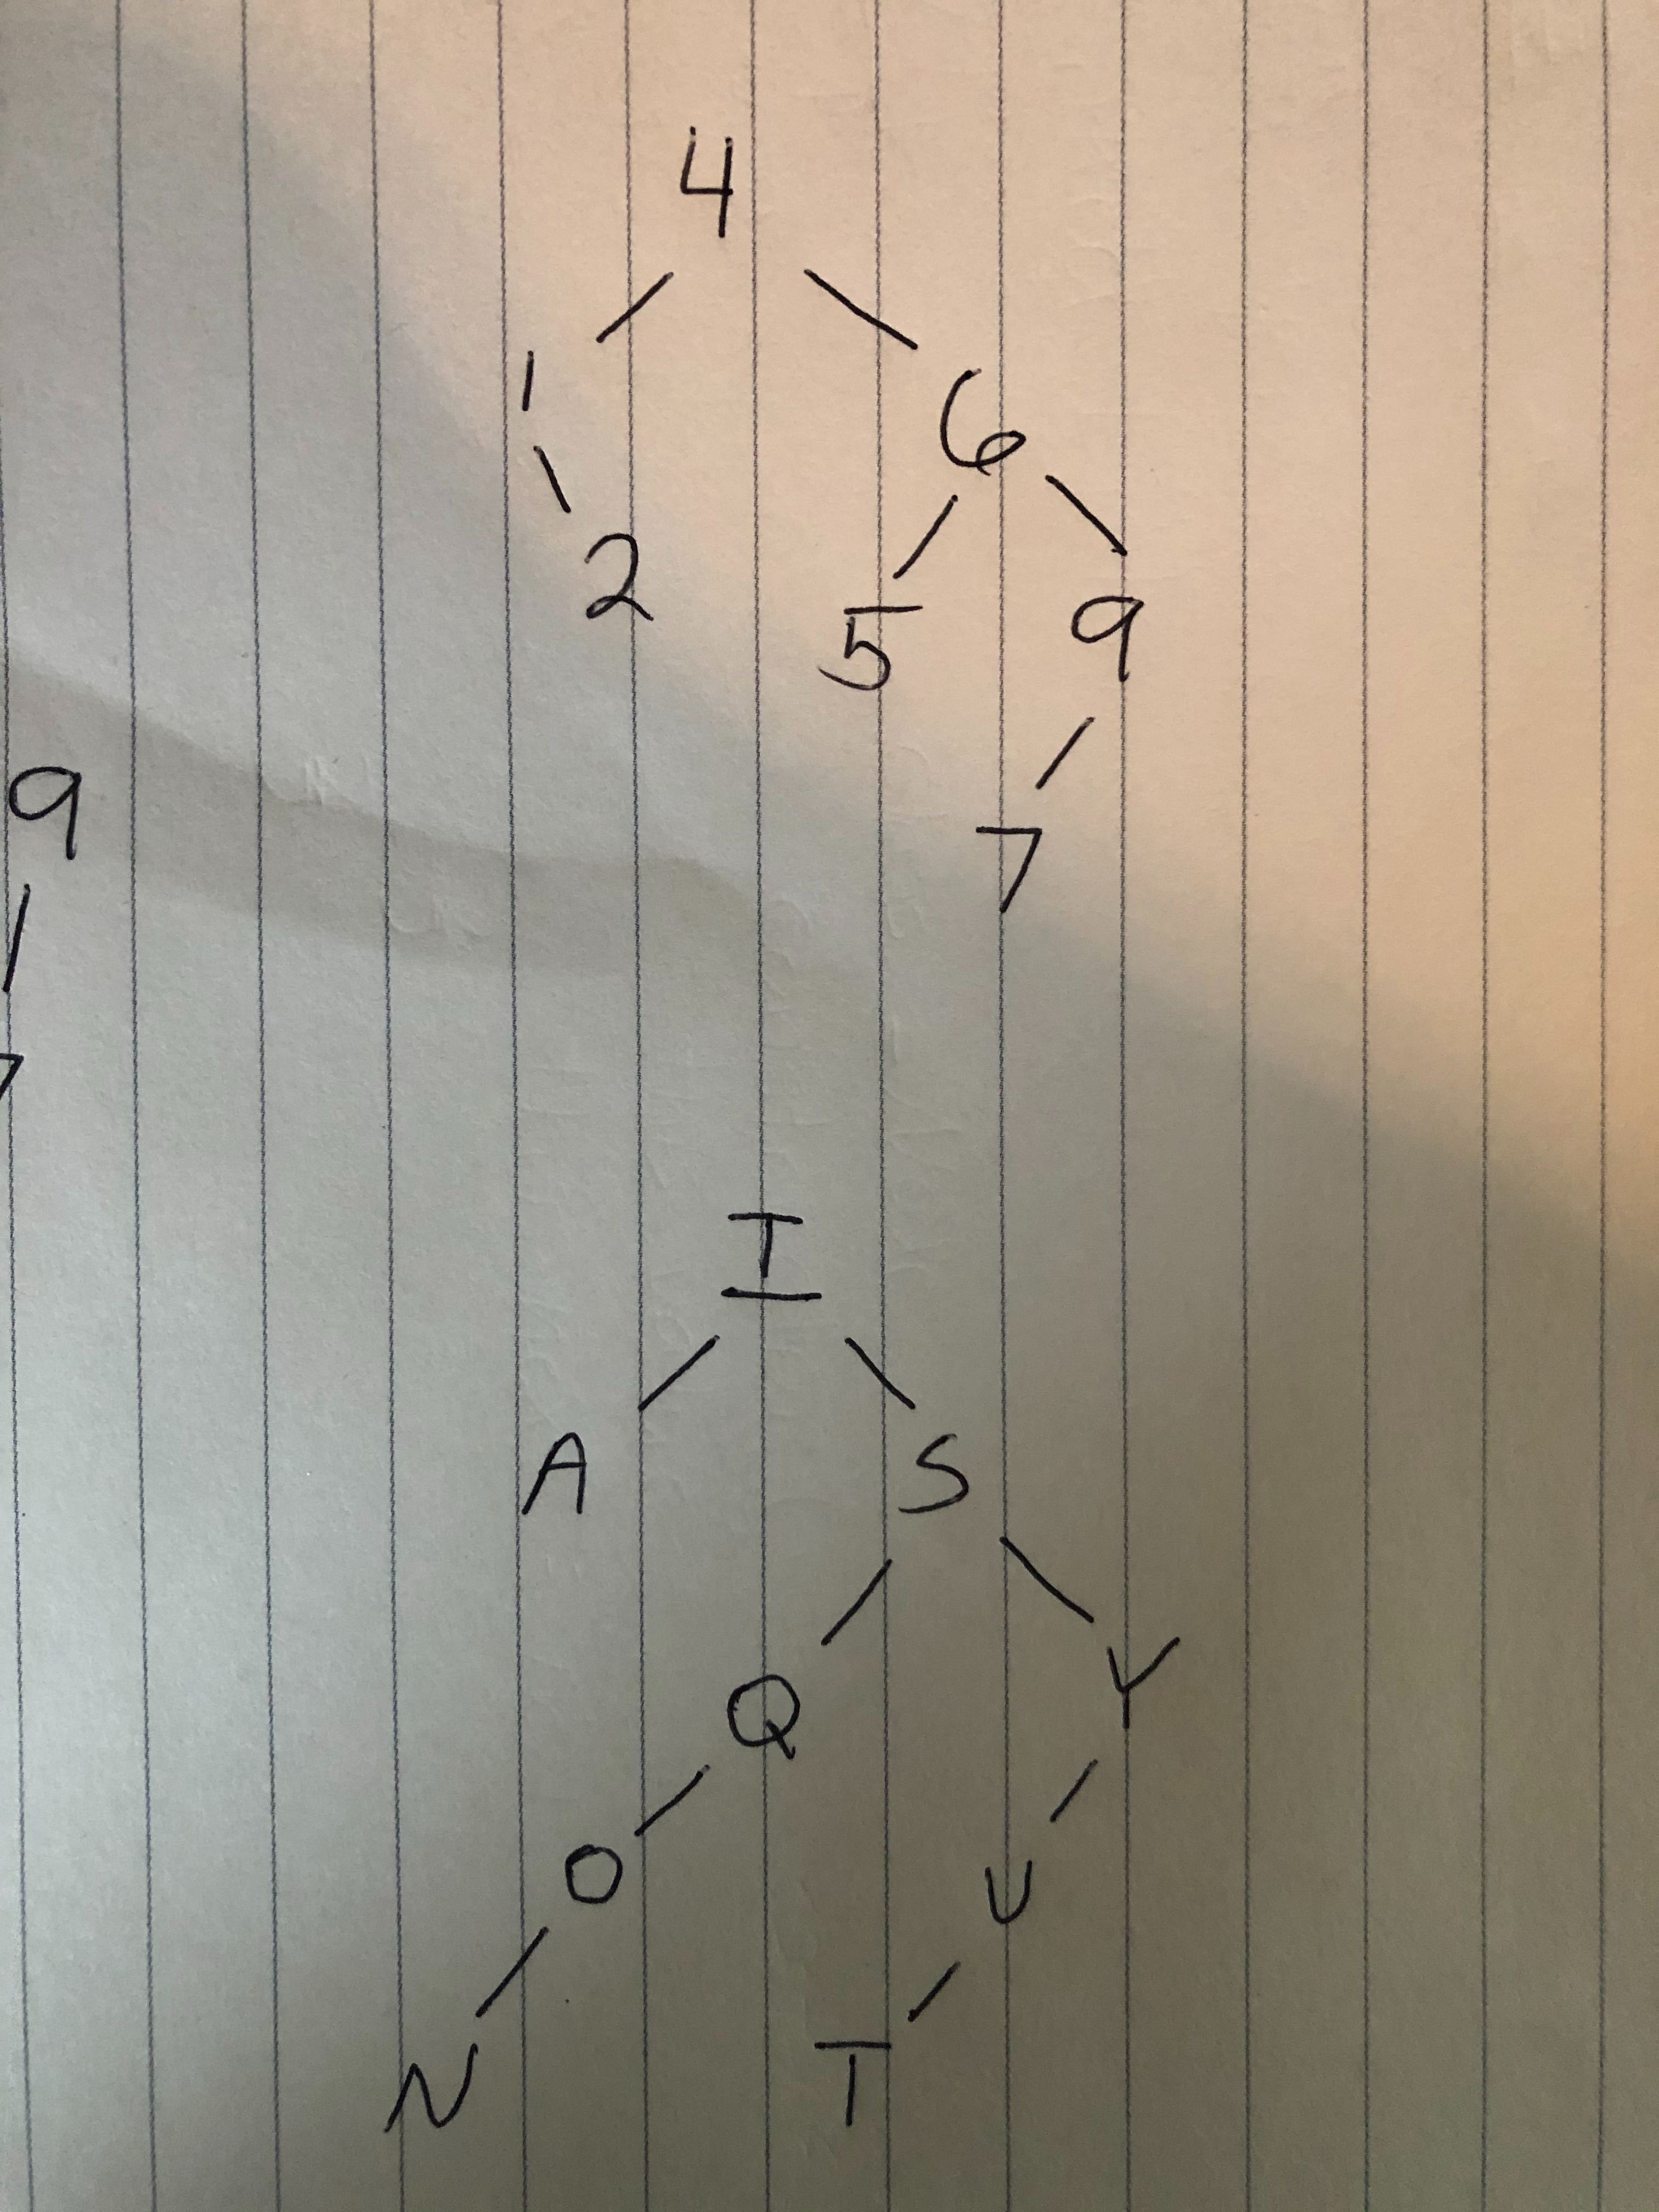 4
1 6
2 5 9
9
7
7
I
A S
Q Y
O U
N T